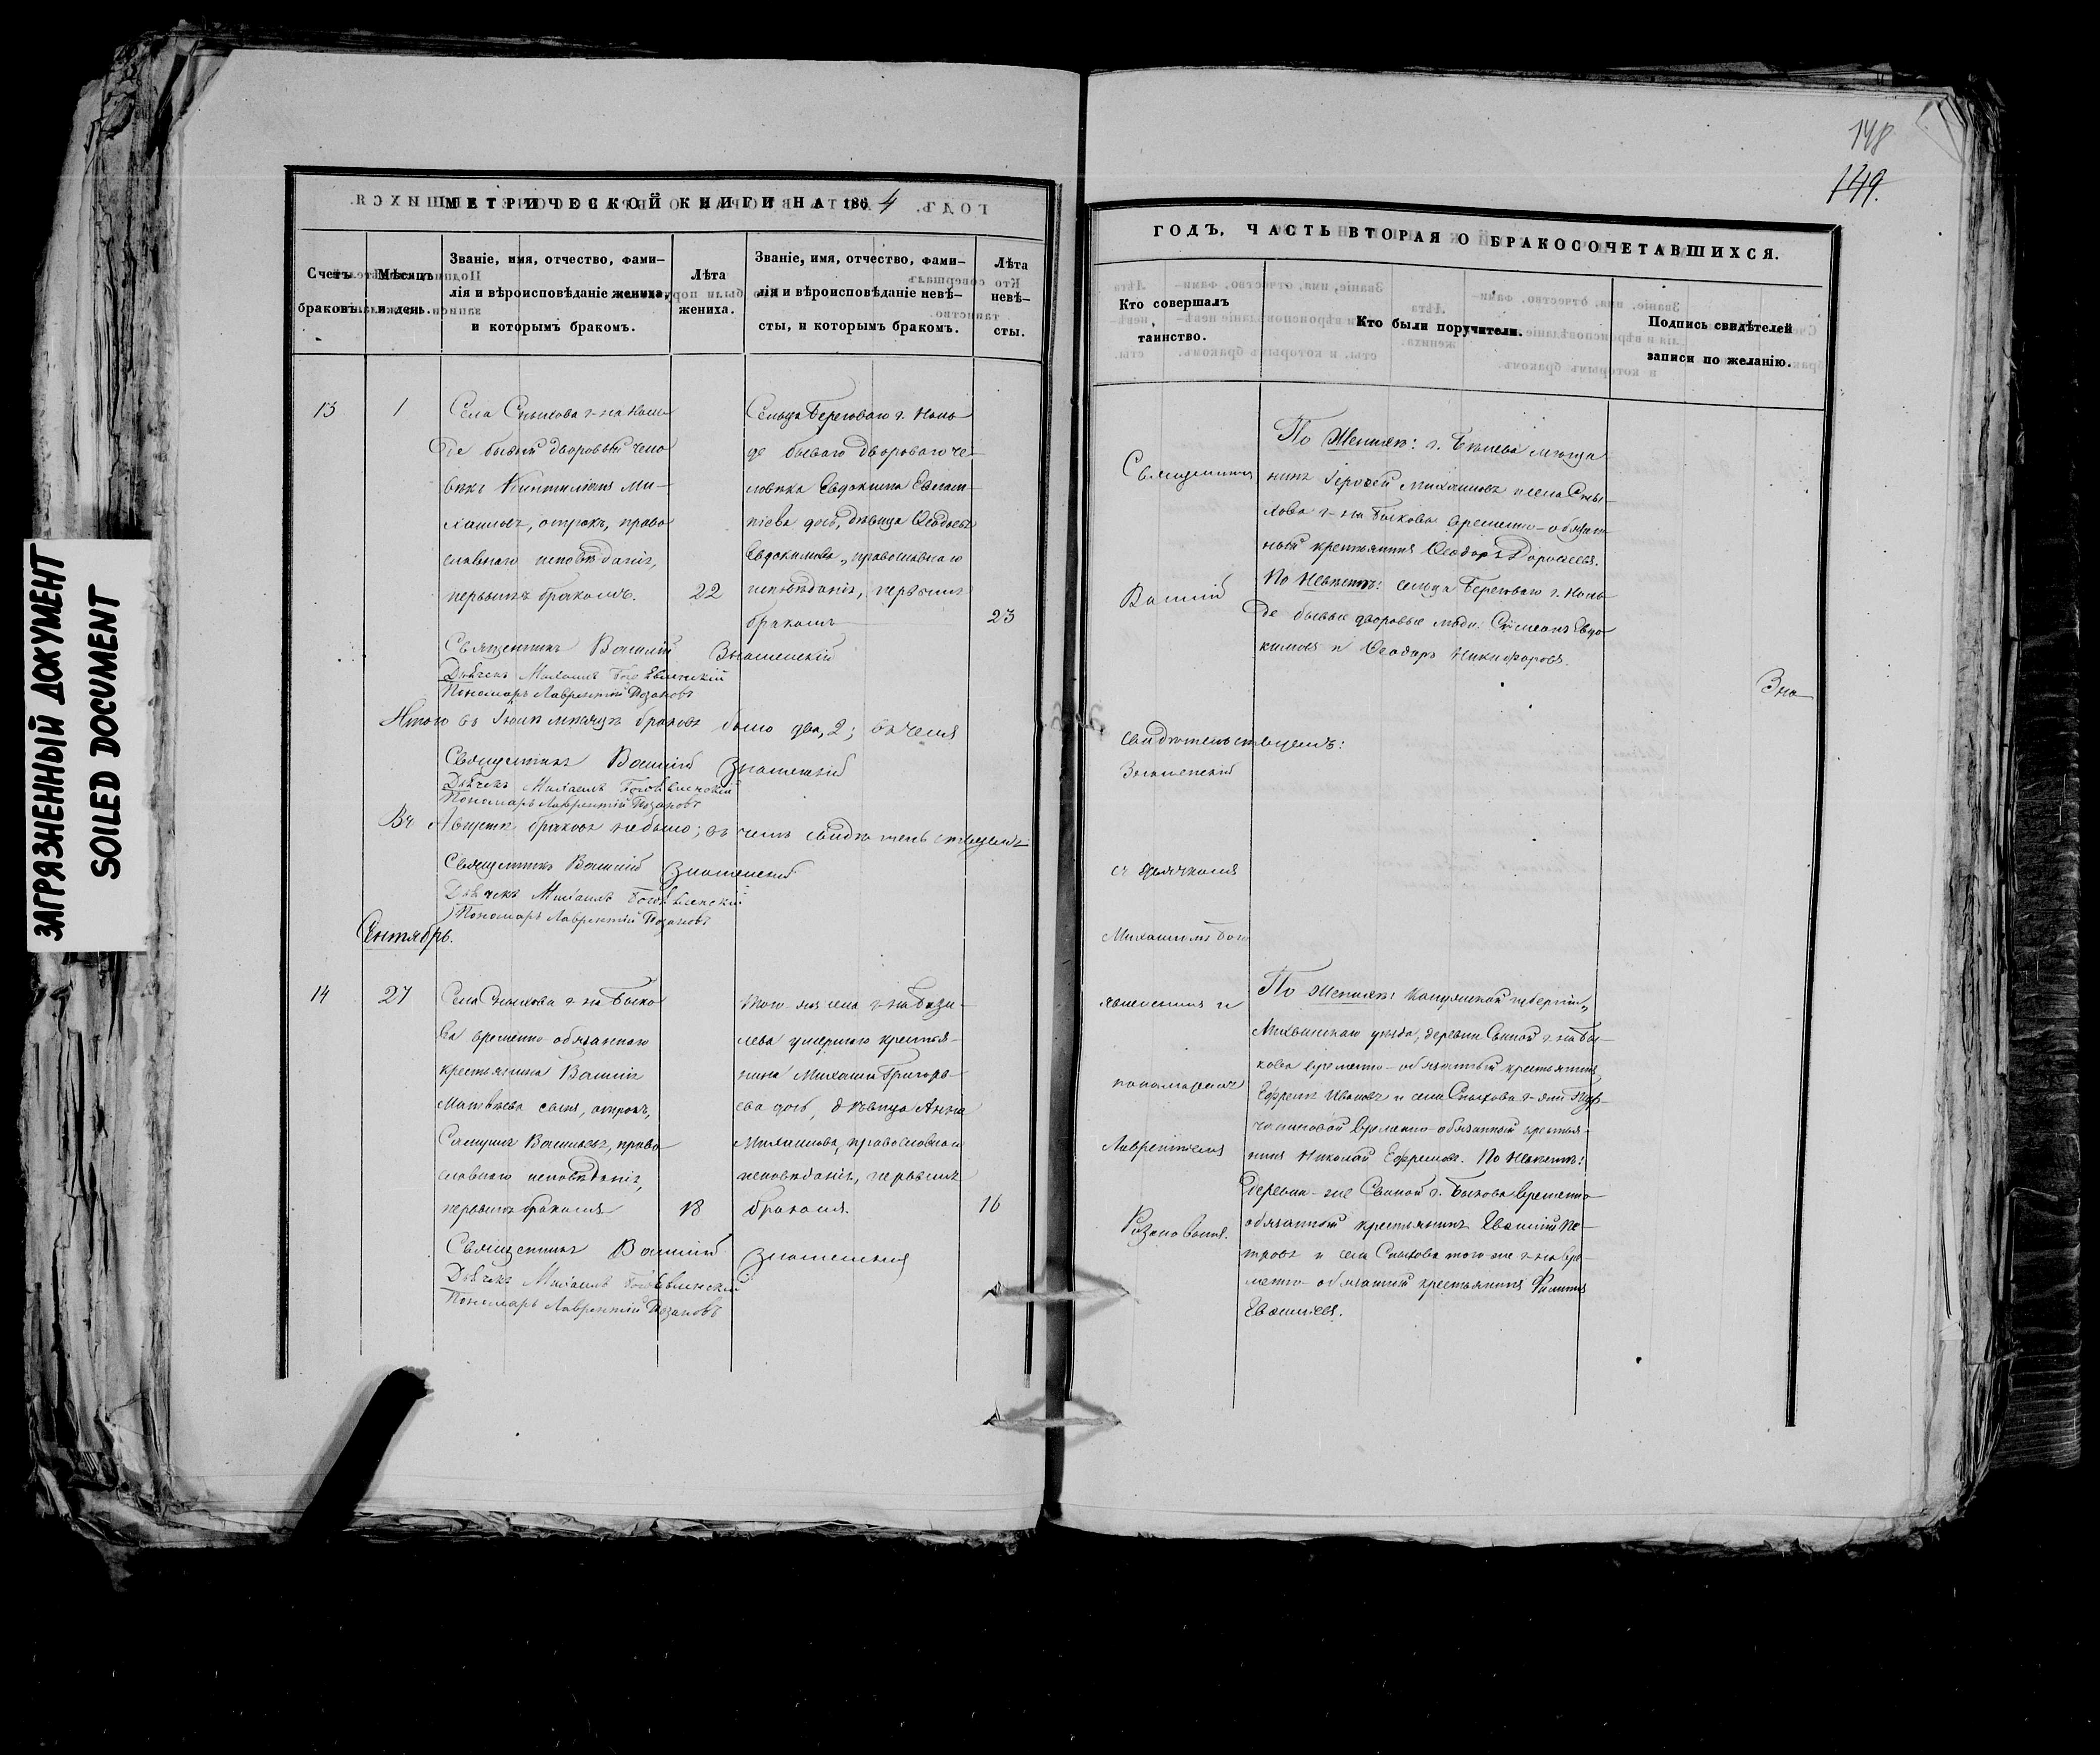 ЗАГРЯЗНЕННЫЙ ДОКУМЕНТ
SOILED DOCUMENT
МЕТРИЧЕСКОЙ КНИГИ НА 1864
Счетъ браковъ.
Мѣсяцъ и день.
Званіе, имя, отчество, фами-
лія и вѣроисповѣданіе жениха,
и которымъ бракомъ.
Лѣта
жениха.
Званіе, имя, отчество, фами-
лія и вѣроисповѣданіе невѣ-
сты, и которымъ бракомъ.
Лѣта
невѣ-
сты.
13
1
Села Сныхова г-на
де бывшій дворовый чело
вѣкъ Ми-
хаиловъ, отрокъ, право
славнаго исповѣданія,
первымъ бракомъ.
22
Сельца Береговаго г.
де бывшаго двороваго че-
ловѣка Евдокима
дочь, дѣвица Ѳеодосья
Евдокимова, православнаго
исповѣданія, первымъ
бракомъ
23
Священникъ Василій Знаменскій
Дьячекъ Михаилъ Богоявленскій
Пономарь Лаврентій Розановъ
Итого въ Іюлѣ мѣсяцѣ браковъ было два, 2; въ чемъ
Священникъ Василій Знаменскій
Дьячекъ Михаилъ Богоявленскій
Пономарь Лаврентій Розановъ
Въ Августѣ браковъ не было; въ чемъ свидѣтельствуемъ
Священникъ Василій Знаменскій
Дьячекъ Михаилъ Богоявленскій
Пономарь Лаврентій Розановъ
Сентябрь.
14
27
Села Сныхова г-на Быко
ва временно-обязаннаго
крестьянина Василія
Матвѣева сынъ, отрокъ,
Васильевъ, право
славнаго исповѣданія,
первымъ бракомъ
18
того-же села г-на
лева умершаго крестья-
нина Михаила Григорь-
ева дочь, дѣвица Анна
Михаилова, православнаго
исповѣданія, первымъ
бракомъ.
16
Священникъ Василій Знаменскій
Дьячекъ Михаилъ Богоявленскій
Пономарь Лаврентій Розановъ
148
149.
ГОДЪ, ЧАСТЬ ВТОРАЯ О БРАКОСОЧЕТАВШИХСЯ.
Кто совершалъ
таинство.
Кто были поручители.
Подпись свидѣтелей
записи по желанію.
Священникъ
Василій
По женихѣ: г. Бѣлева мѣща
нинъ Михаиловъ и села Сны-
хова г-на Быкова временно-обязан-
ный крестьянинъ Ѳеодоръ Дороѳеевъ.
По невѣстѣ: сельца Береговаго г.
де бывшіе дворовые люди: Симеонъ Евдо-
кимовъ и Ѳеодоръ Никифоровъ.
Зна
свидѣтельствуемъ:
Знаменскій
съ дьячкомъ
Михаиломъ Бого
явленскимъ и
пономаремъ
Лаврентіемъ
Розановымъ.
По женихѣ: Калужской губерніи,
Лихвинскаго уѣзда, деревни Свиной г-на Бы-
кова временно-обязанный крестьянинъ
Ефремъ Ивановъ и села Сныхова г-жи
временно-обязанный крестья-
нинъ Николай Ефремовъ. По невѣстѣ:
деревни-же Свиной г. Быкова временно
обязанный крестьянинъ Пе-
тровъ и села Сныхова того-же г-на вре-
менно-обязанный крестьянинъ Филиппъ